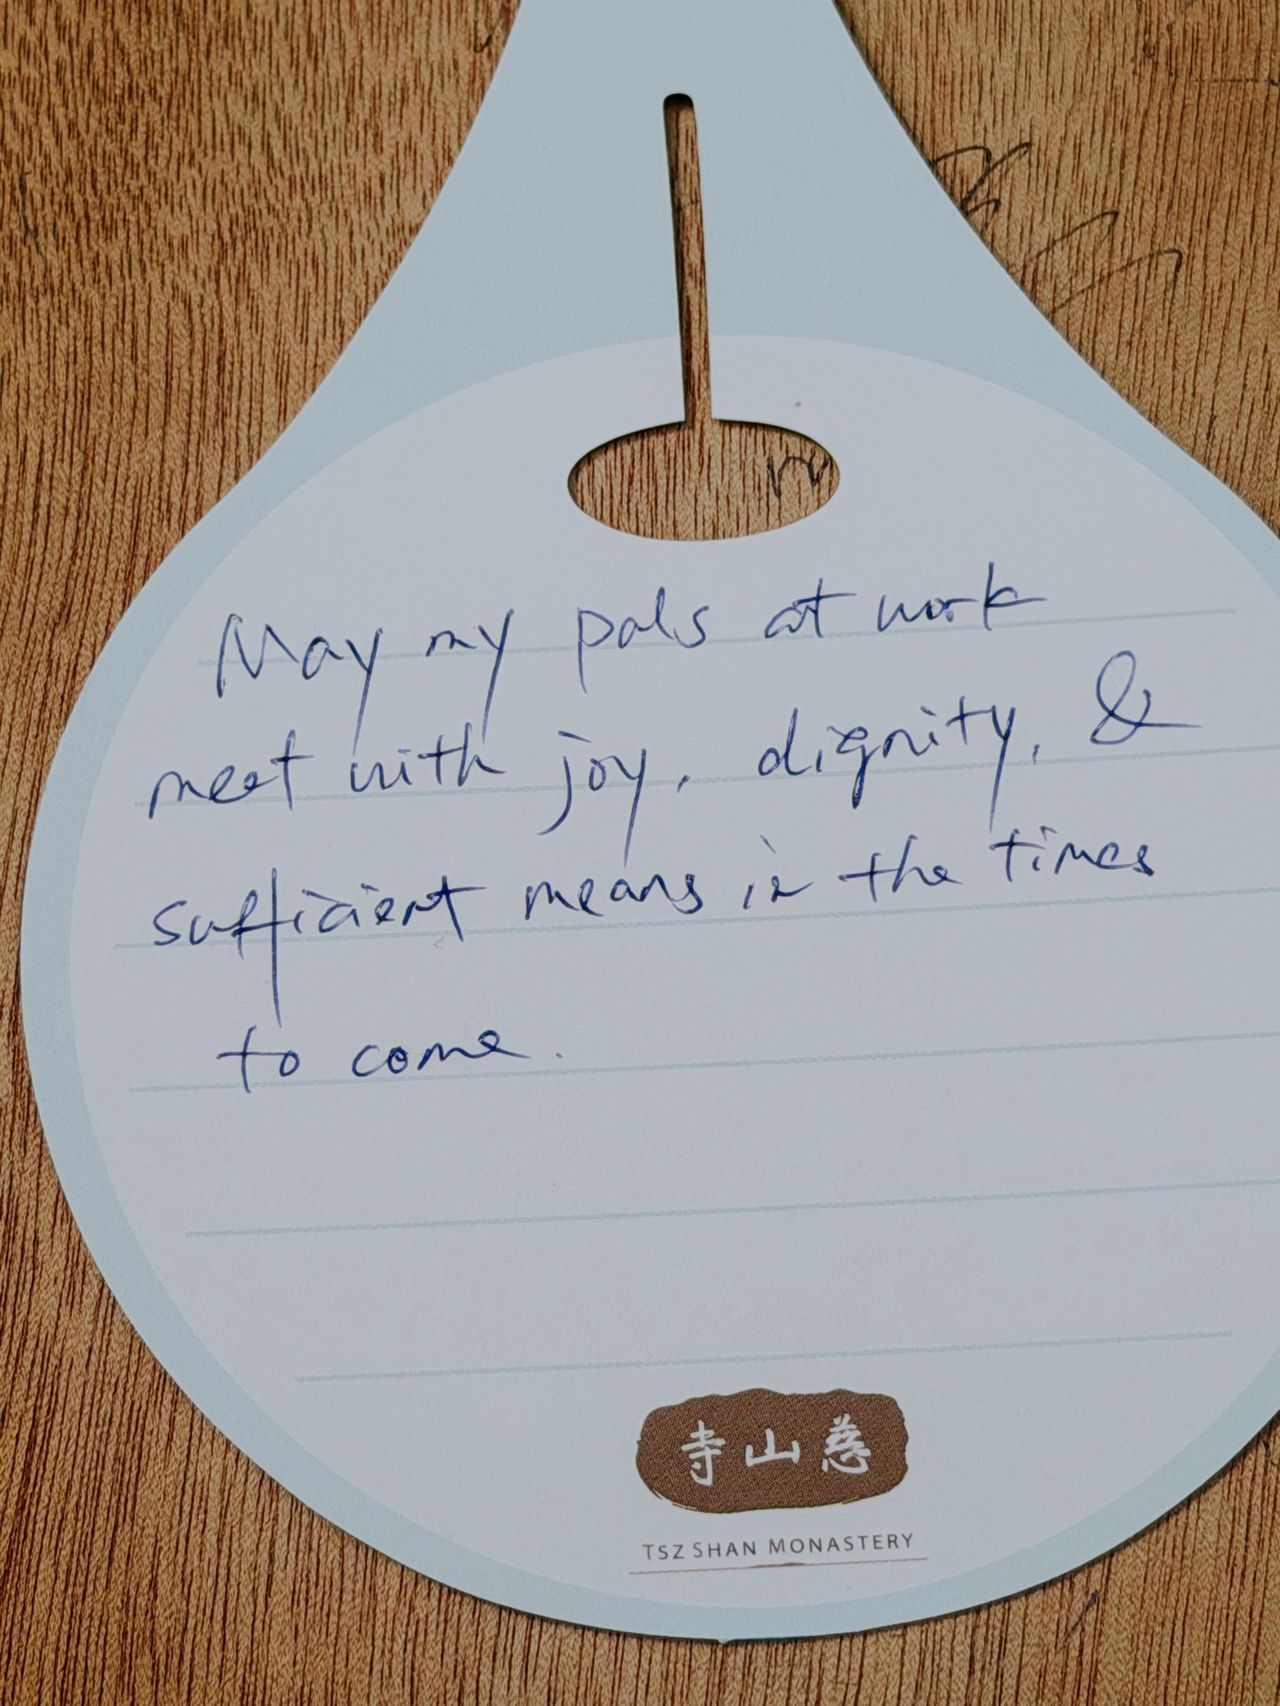 May my pals at work
meet with joy, dignity, &
sufficient means in the times
to come.
寺山慈
TSZ SHAN MONASTERY